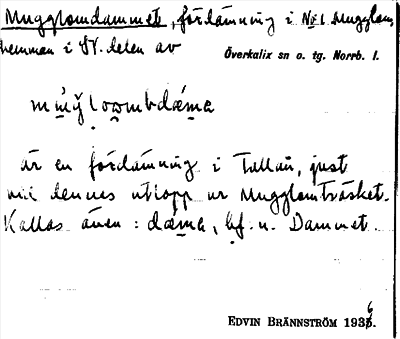 Mugglomdammet, fördämning i N:o 1 Mugglom,
hemman i SV. delen av
Överkalix sn o. tg. Norrb. l.
är en fördämning i Tallån, just
vid dennes utlopp ur Mugglomträsket.
Kallas även: dæma, bf. n. Dammet.
EDVIN BRÄNNSTRÖM 1936.